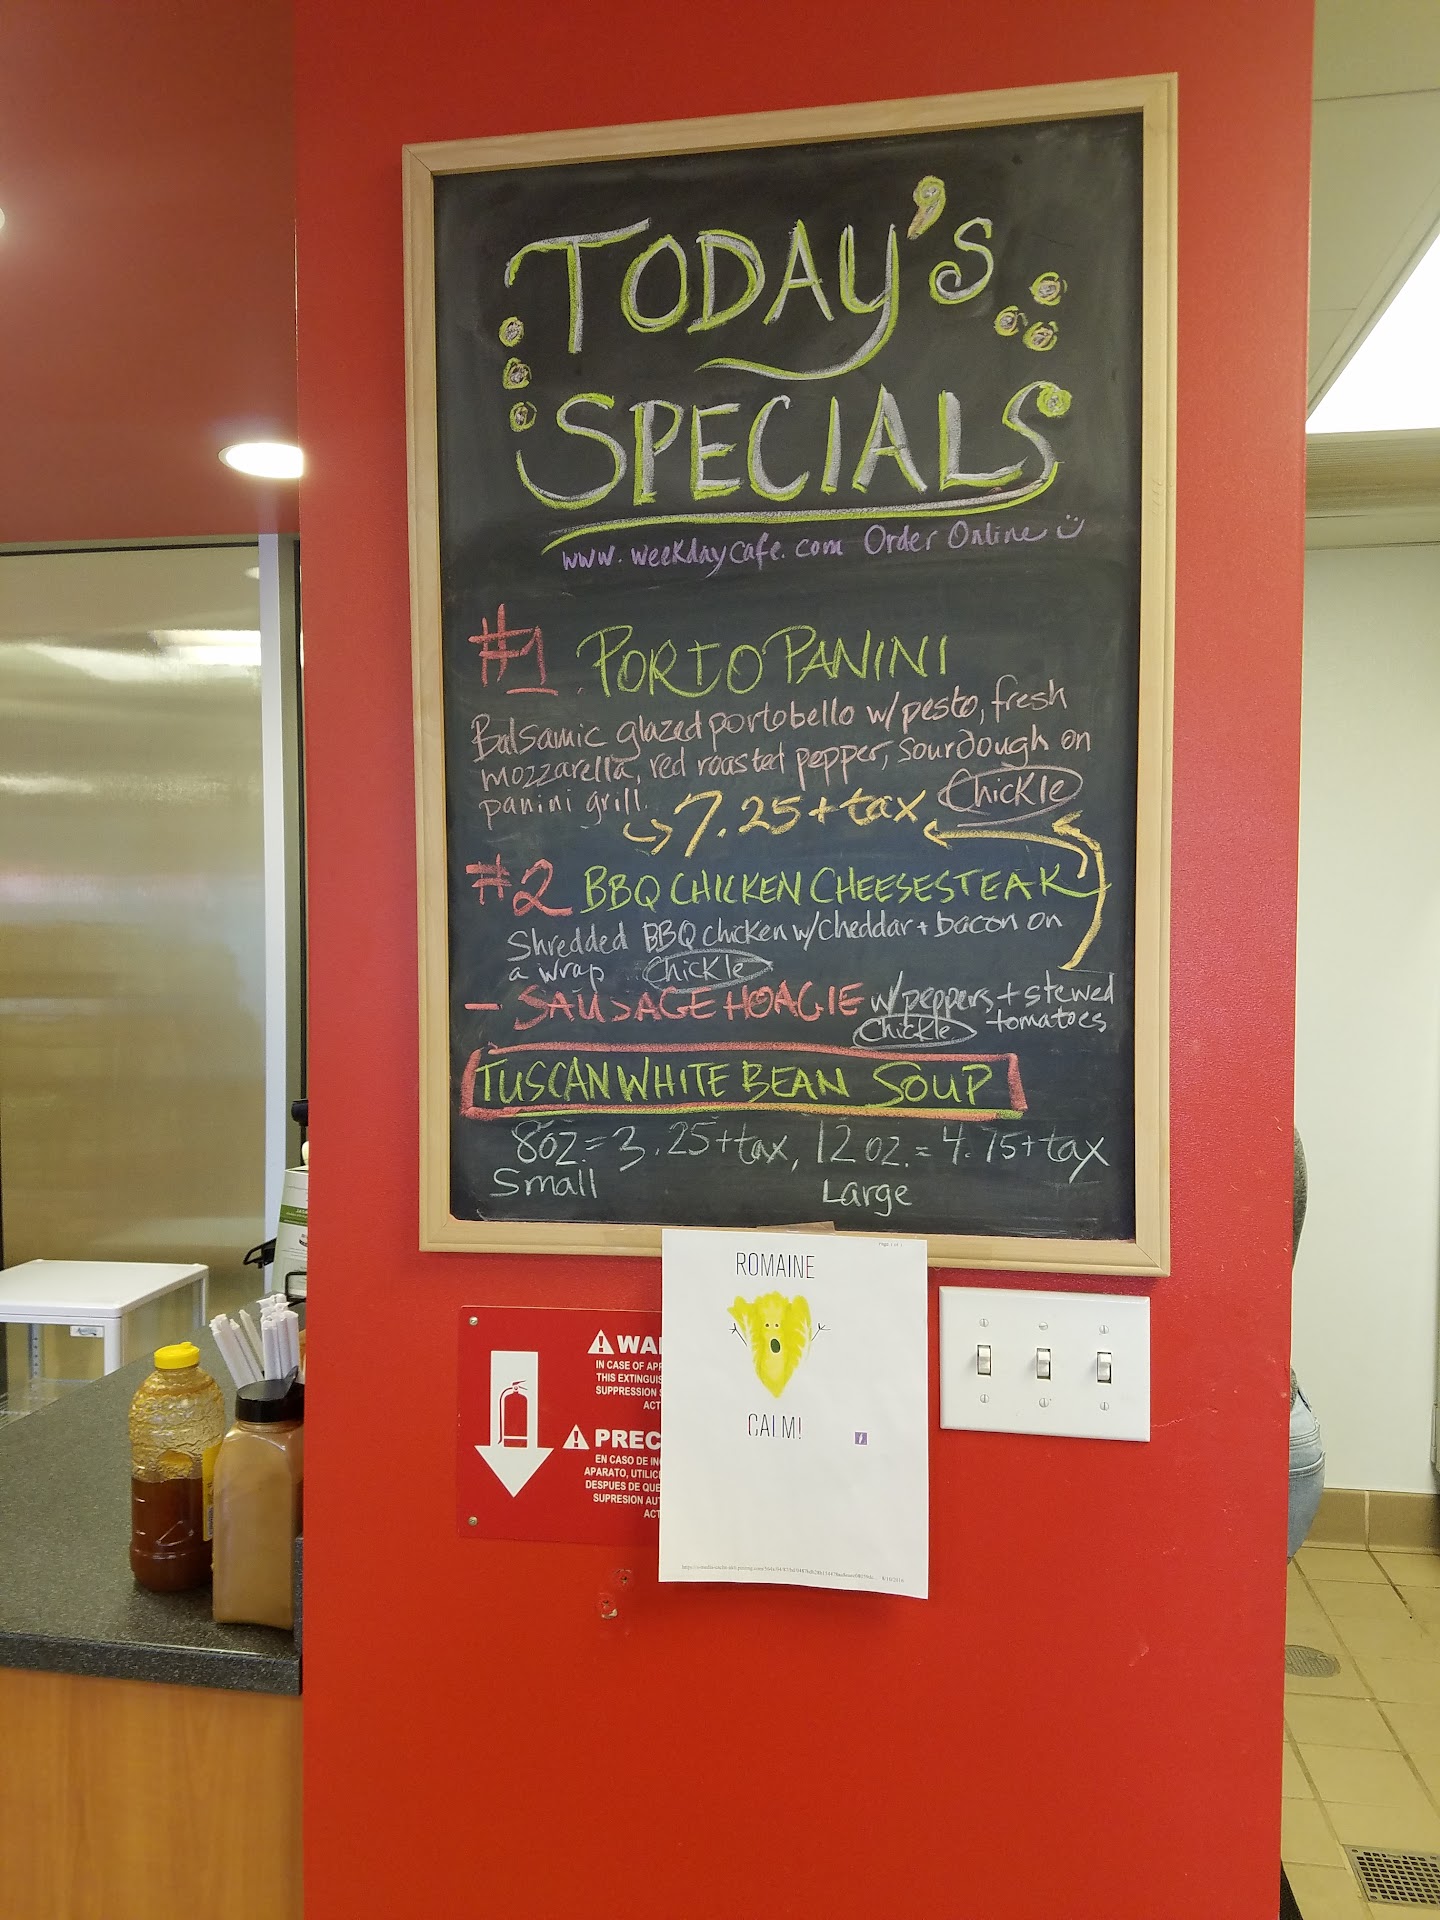 TODAY'S
SPECIALS
www.weekdaycafe.com Order Online
#1 PORTO PANINI
Balsamic glazed portobello w/pesto, fresh
mozzarella, red roasted pepper, sourdough on
panini grill. Chickle
7.25+tax
#2 BBQ CHICKEN CHEESESTEAK
Shredded BBQ chicken w/cheddar + bacon on
a wrap Chickle
- SAUSAGE HOAGIE w/peppers + stewed
Chickle tomatoes
TUSCAN WHITE BEAN SOUP
8oz.=3.25+tax, 12oz.=4.75+tax
Small Large
Page 1 of 1
ROMAINE
CALM!
WA
IN CASE OF AP
THIS EXTINGUIS
SUPPRESSION
ACT
PREC
EN CASO DE IN
APARATO, UTILIC
DESPUES DE QUE
SUPRESION AUT
ACT